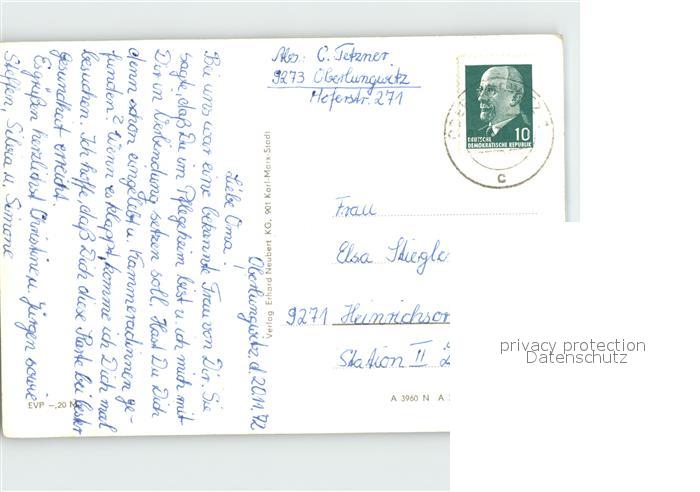 Oberlungwitz, d. 20.11.72
Liebe Oma!
Bei uns war eine bekannte Frau von Dir. Sie
sagte, daß Du im Pflegeheim bist u. ich mich mit
Dir in Verbindung setzen soll. Hast Du Dich
denn schon eingelebt u. Kammeradinnen ge-
funden? Wenn es klappt, komme ich Dich mal
besuchen. Ich hoffe, daß Dich diese Karte bei bester
Gesundheit erreicht.
Es grüßen herzlichst Christine u. Jürgen sowie
Steffen, Silvia u. Simone
Abs: C. Tetzner
9273 Oberlungwitz
Hoferstr. 271
10
DEUTSCHE
DEMOKRATISCHE REPUBLIK
c
Verlag Erhard Neubert KG, 901 Karl-Marx-Stadt
Frau
Elsa Stiegle
9271 Heinrichsor
Station II
EVP –,20 M
A 3960 N A
privacy protection
Datenschutz